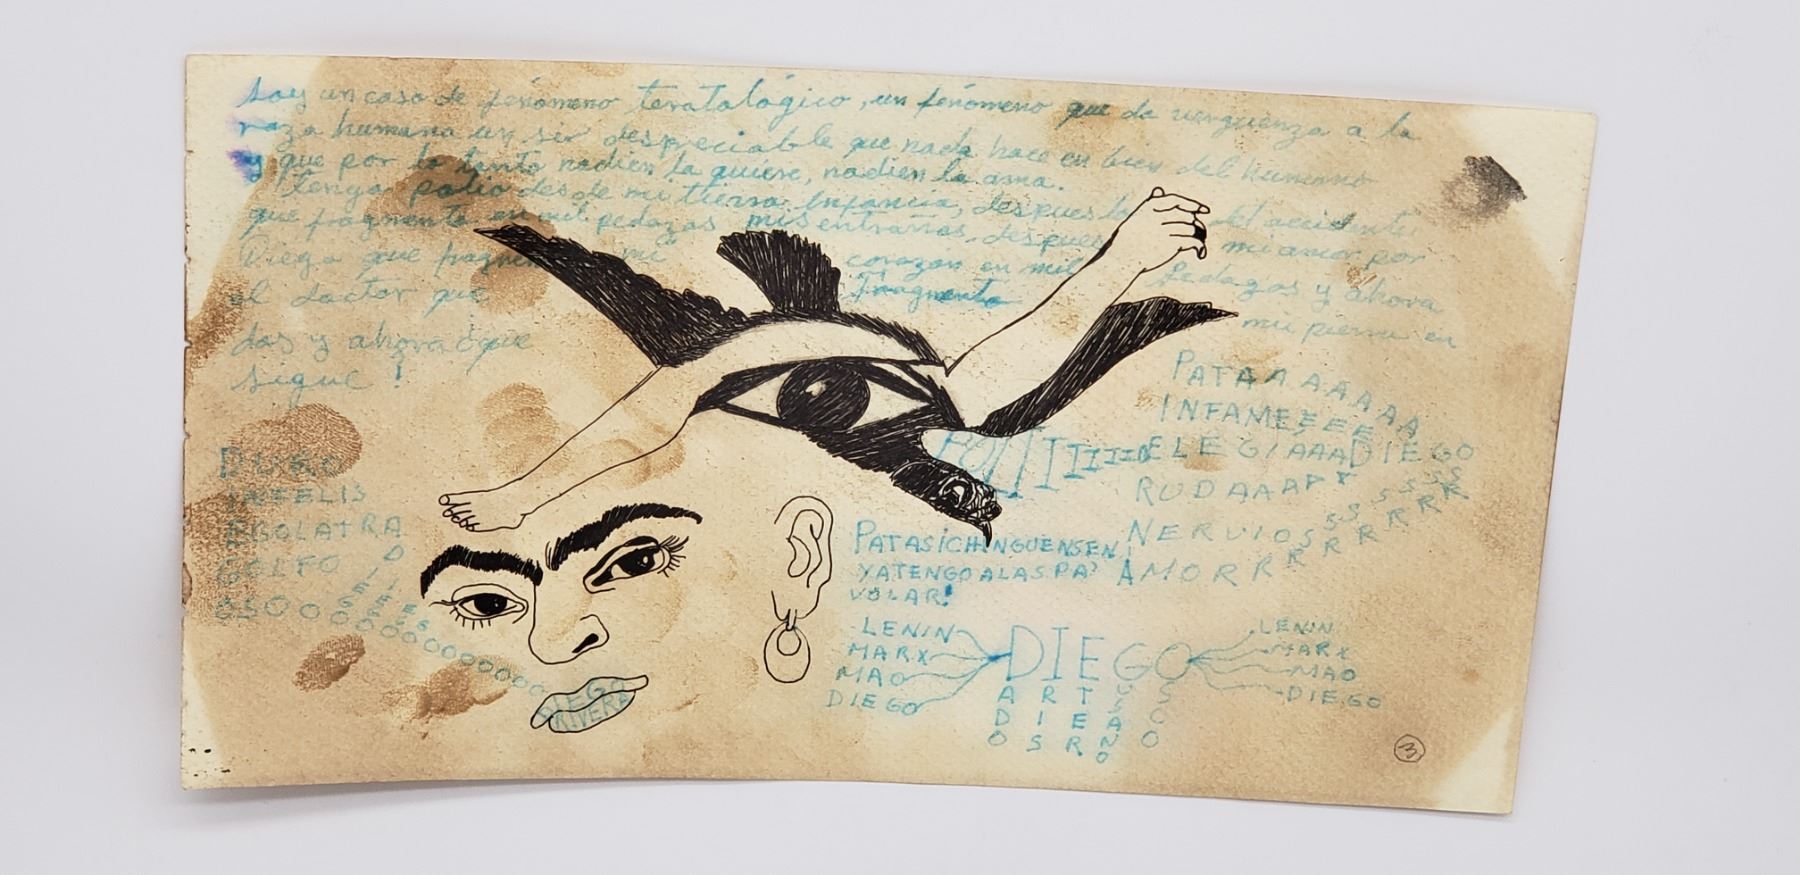 Soy un caso de fenómeno teratológico, un fenómeno que da verguenza a la
raza humana un ser despreciable que nada hace en bien del humano
y que por lo tanto nadien la quiere, nadien la ama.
tengo polio desde mi tierna infancia, despues del accidente
que fragmento en mil pedazos mis entrañas, despues mi amor por
Diego que fragmento mi corazon en mil pedazos y ahora
el doctor que fragmento mi pierna en
das y ahora ¿que
sigue!
PATAAAAAAA
INFAMEEEEE
ELEGIAAADIEGO
RUDAAA
NERVIOSSSSSSS
AMORRRRRRRR
DURO
INFELIS
EGOLATRA
GOLFO
OSOOOOOOOOOOOOOOO
PATASICHINGUENSEN!
YATENGOALASPA'
VOLAR!
LENIN
MARX
MAO
DIEGO
DIEGO
LENIN
MARX
MAO
DIEGO
ARTSS
DIEAO
OSRNO
O
DIEGO
RIVERA
3